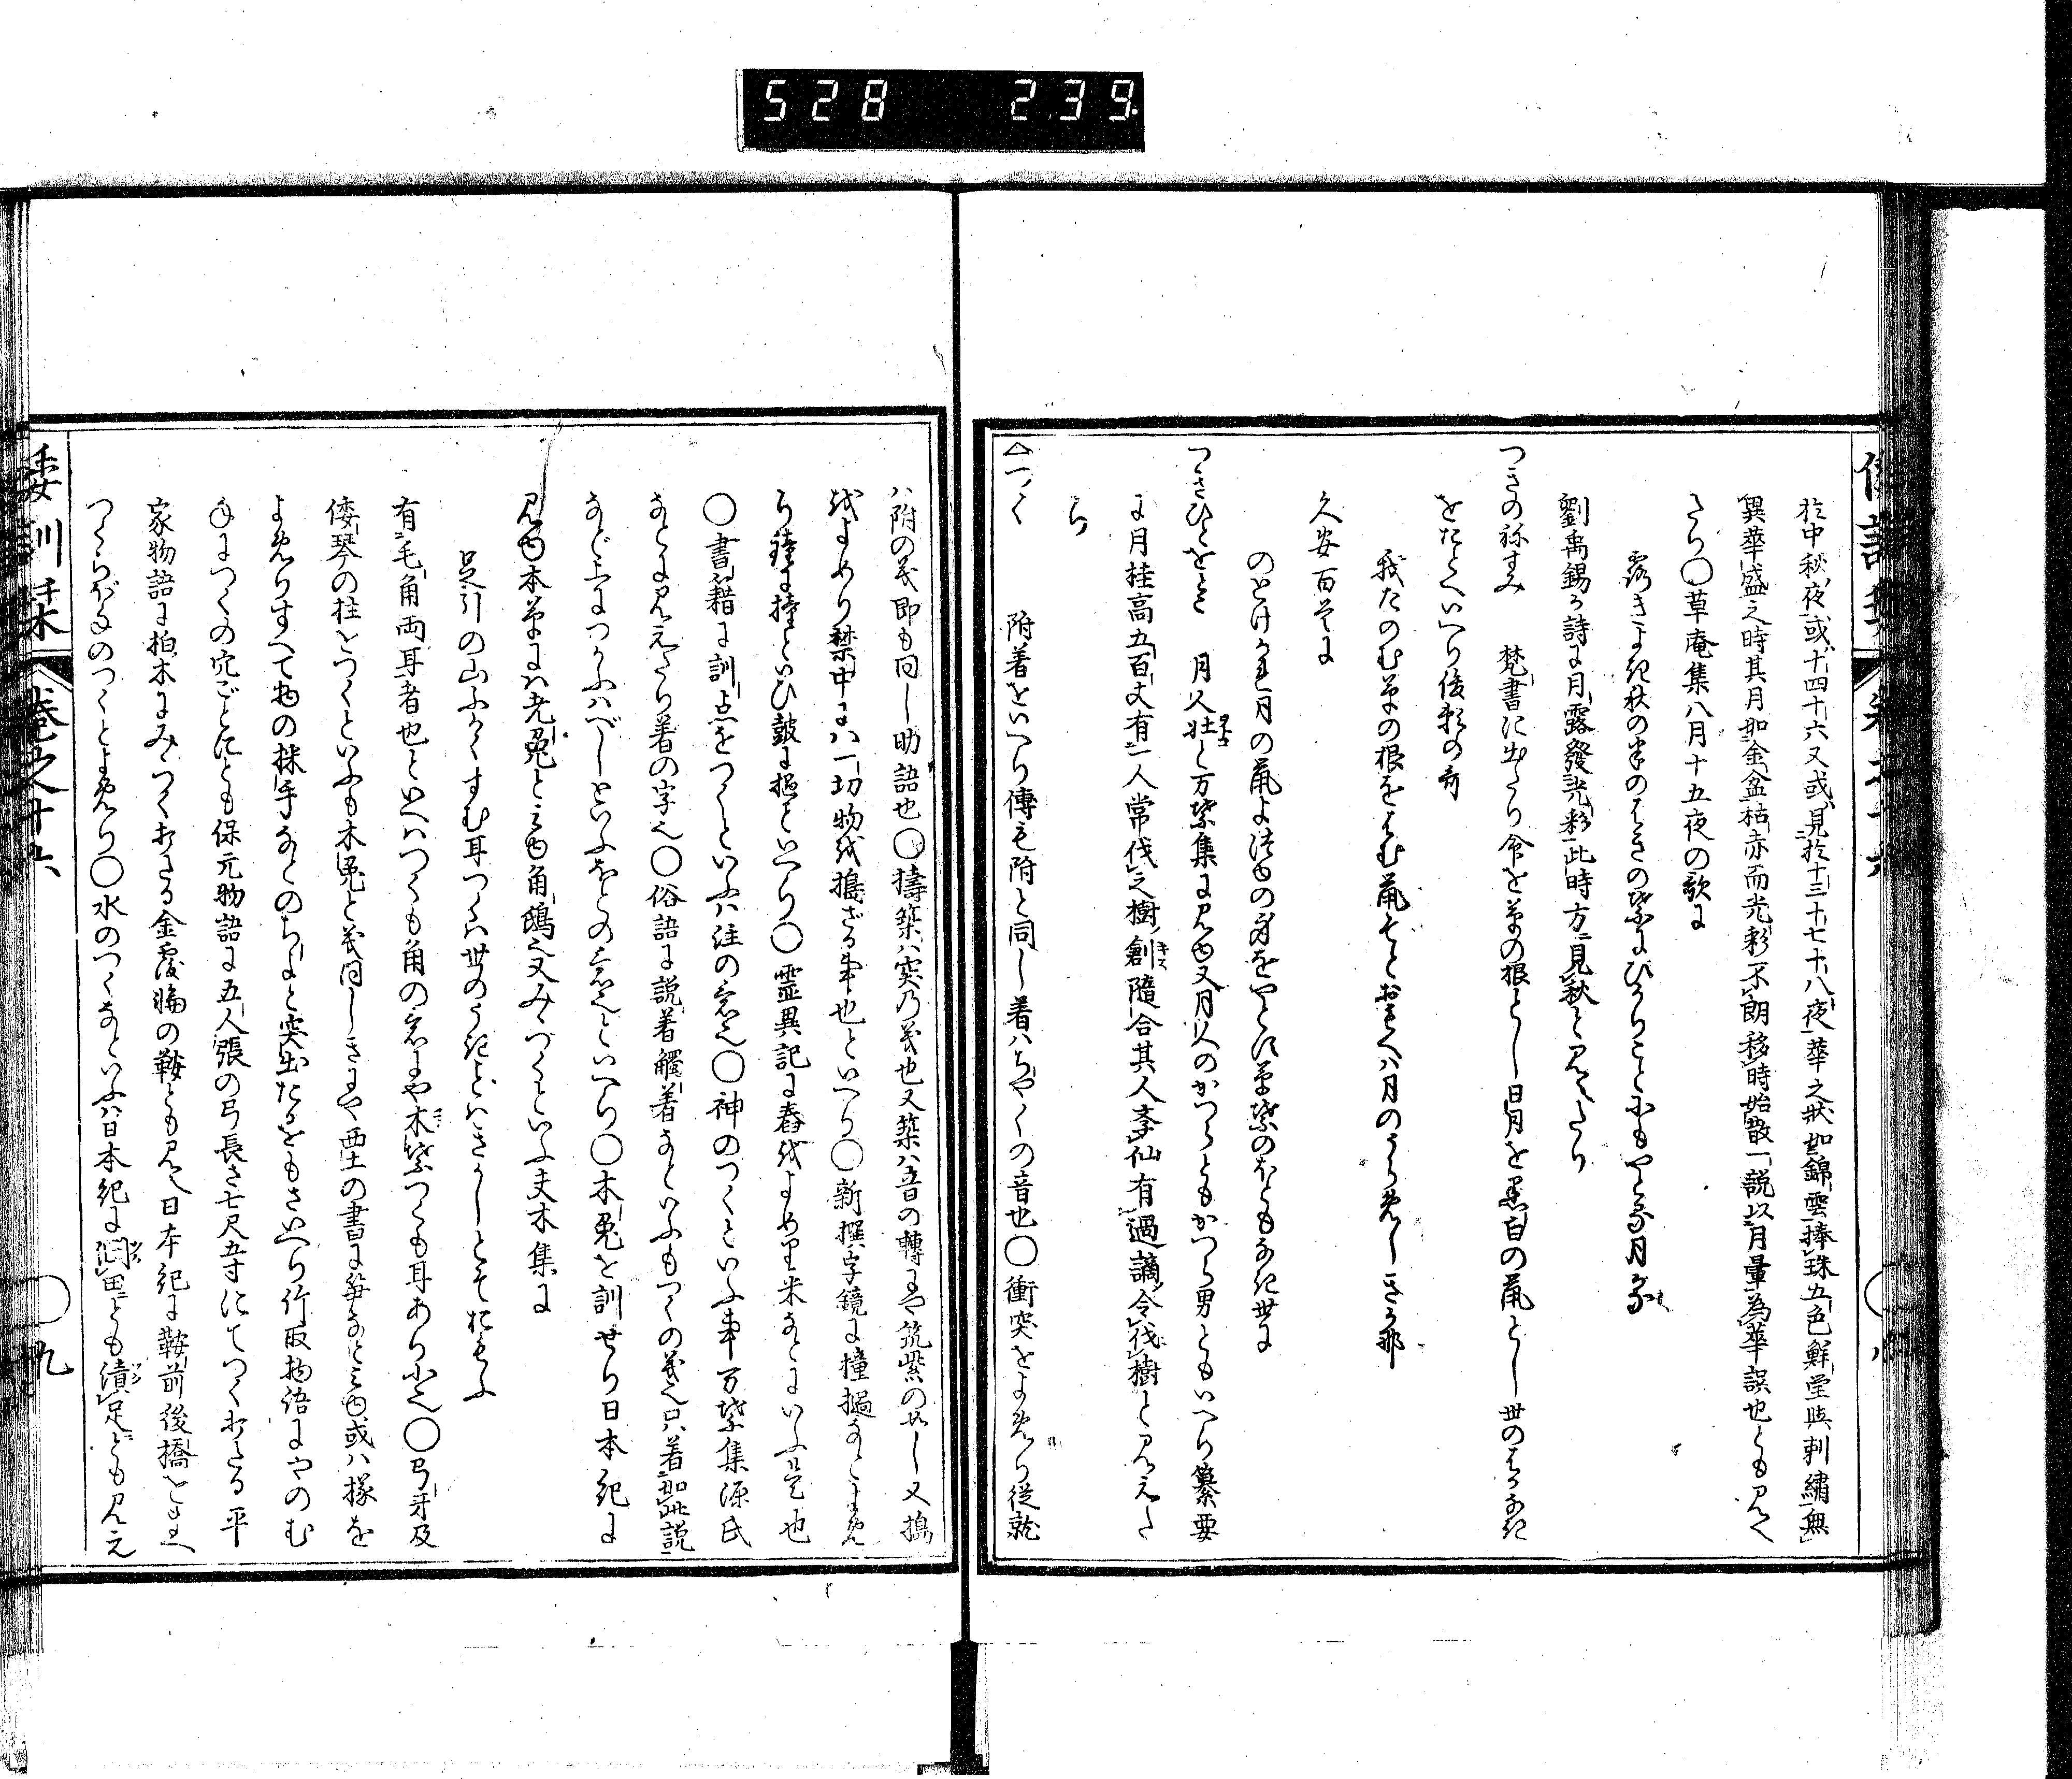 528 239
於中秋夜或十四十六又或見於十三十七十八夜華之状如錦雲捧珠五色鮮瑩與刺繡無
異華盛之時其月如金盆枯赤而光彩不朗移時始散一説以月暈為華誤也とも見え
たり〇草庵集八月十五夜の歌に
露きよき秋の半のはきの葉にひかりことにもやとる月かな
劉禹錫か詩に月露發光彩此時方見秋と見えたり
つきのねすみ 梵書に出たり命を草の根とし日月を黒白の鼠とし世のはかなき
をたとへいへり俊頼の哥
我たのむ草の根をはむ鼠そとおもへハ月のうらめしきかな
久安百首に
のとけかれ月の鼠よ露の身をやとす草葉のほともなき世に
つきひとをとこ 月人壮と万葉集に見ゆ又月人のかつらともかつら男ともいへり纂要
に月桂高五百丈有一人常伐之樹創隨合其人姓呉仙有過謫令伐樹と見えた
り
△つく 附着をいへり傳も附と同し着ハちやくの音也〇衝突をよめり従就
ハ附の義即も同し助語也〇擣築ハ突の義也又築ハ音の轉にや筑紫の如し又搗
をよめり禁中にハ一切物を搗ざる事也といへり〇新撰字鏡に撞撾なとよめ
り鐘に撞といひ鼓に撾といへり〇霊異記に舂をよめり米なとにいふ是也
〇書籍に訓点をつくといふハ注の意也〇神のつくといふ事万葉集源氏
なとに見えたり着の字也〇俗語に説着觸着なといふもつくの義也只着如此説
なと上につかふハべしといふほとの意也といへり〇木兎を訓せり日本紀に
見ゆ本草にハ老兎と見ゆ角鴟也又みゝづくといふ夫木集に
足引の山ふかくすむ耳つくハ世のうきことハきかしとそおもふ
有毛角両耳者也といへハつくも角の意にや木葉つくも耳あり小也〇弓弭及
倭琴の柱をつくといふも木兎と義同しきにや西土の書に笋なと見ゆ或ハ椓を
よめりすへて物の株手なとのちよと突出たるをもさいへり竹取物語にやのむ
ねにつくの穴ごとにとも保元物語に五人張の弓長さ七尺五寸にてつく打たる平
家物語に柏木にみゝつく打たる金覆輪の鞍とも見ゆ日本紀に鞍前後橋をよみ
つくらぼねのつくとよめり〇水のつくなといふハ日本紀に浸田とも漬足とも見え
倭訓栞 巻之十六 〇九